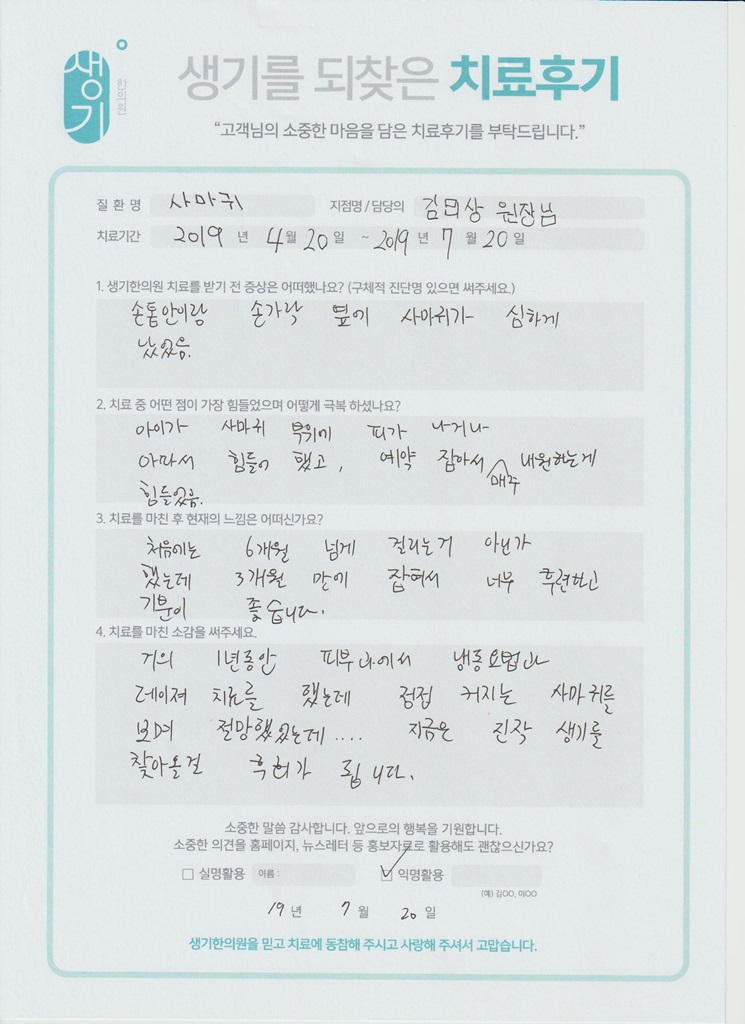 생기
한의원
생기를 되찾은 치료후기
“고객님의 소중한 마음을 담은 치료후기를 부탁드립니다.”
질 환 명 사마귀 지점명 / 담당의 김의상 원장님
치료기간 2019 년 4 월 20 일 ~ 2019 년 7 월 20 일
1. 생기한의원 치료를 받기 전 증상은 어떠했나요? (구체적 진단명 있으면 써주세요.)
손톱안이랑 손가락 옆에 사마귀가 심하게
났었음.
2. 치료 중 어떤 점이 가장 힘들었으며 어떻게 극복 하셨나요?
아이가 사마귀 부위에 피가 나거나
아파서 힘들어 했고, 예약 잡아서 매주 내원하는게
힘들었음.
3. 치료를 마친 후 현재의 느낌은 어떠신가요?
처음에는 6개월 넘게 걸리는거 아닌가
했는데 3개월 만에 잡혀서 너무 후련하고
기분이 좋습니다.
4. 치료를 마친 소감을 써주세요.
거의 1년동안 피부과에서 냉동요법과
레이져 치료를 했는데 점점 커지는 사마귀를
보며 절망했었는데.... 지금은 진작 생기를
찾아올걸 후회가 됩니다.
소중한 말씀 감사합니다. 앞으로의 행복을 기원합니다.
소중한 의견을 홈페이지, 뉴스레터 등 홍보자료로 활용해도 괜찮으신가요?
실명활용 이름 : 익명활용
(예) 김OO, 이OO
19 년 7 월 20 일
생기한의원을 믿고 치료에 동참해 주시고 사랑해 주셔서 고맙습니다.